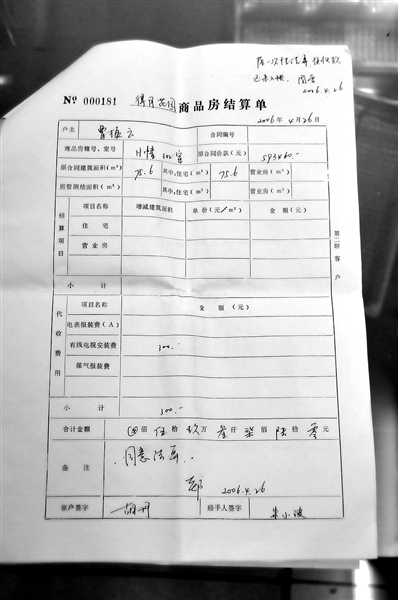 已录入账
2006.4.26
№ 000181 得月花园 商品房结算单
2006年4月26日
户主 合同编号
商品房幢号、室号 302室 原合同价款(元) 593460.-
原合同建筑面积(m²) 75.6 其中:住宅(m²) 75.6 营业房(m²)
房管测绘面积(m²) 其中:住宅(m²) 营业房(m²)
结算项目 项目名称 增减建筑面积 单价(元/m²) 金额(元)
住宅
营业房
小计
第二联客户
代收费用 项目名称 金额(元)
电表报装费(A)
有线电视安装费 300.-
煤气报装费
小计 300.-
合计金额 佰伍拾玖万叁仟柒佰陆拾零元
备注 同意结算
郑 2006.4.26
客户签字 胡丹 经手人签字 朱小波